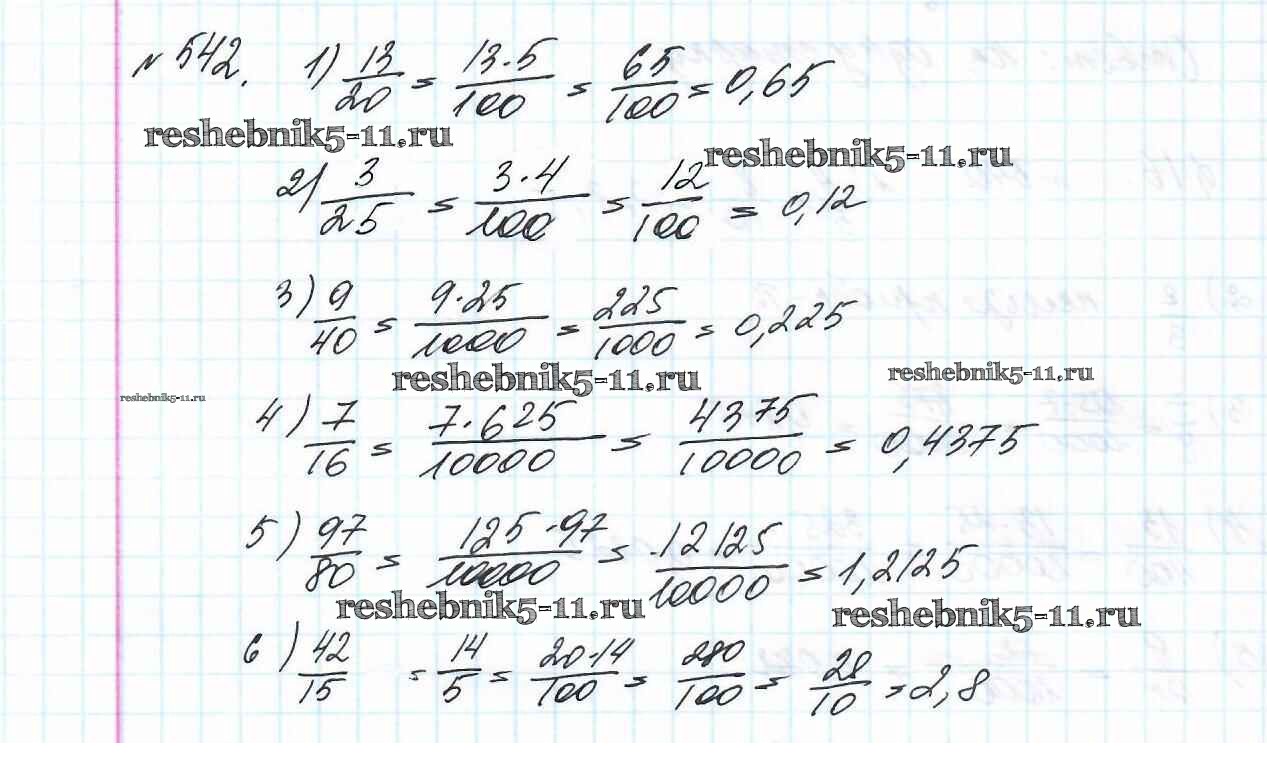 № 542. 1) 13/20 = 13·5/100 = 65/100 = 0,65
reshebnik5-11.ru
reshebnik5-11.ru
2) 3/25 = 3·4/100 = 12/100 = 0,12
3) 9/40 = 9·25/1000 = 225/1000 = 0,225
reshebnik5-11.ru
reshebnik5-11.ru
reshebnik5-11.ru
4) 7/16 = 7·625/10000 = 4375/10000 = 0,4375
5) 97/80 = 125·97/10000 = 12125/10000 = 1,2125
reshebnik5-11.ru
reshebnik5-11.ru
6) 42/15 = 14/5 = 20·14/100 = 280/100 = 28/10 = 2,8